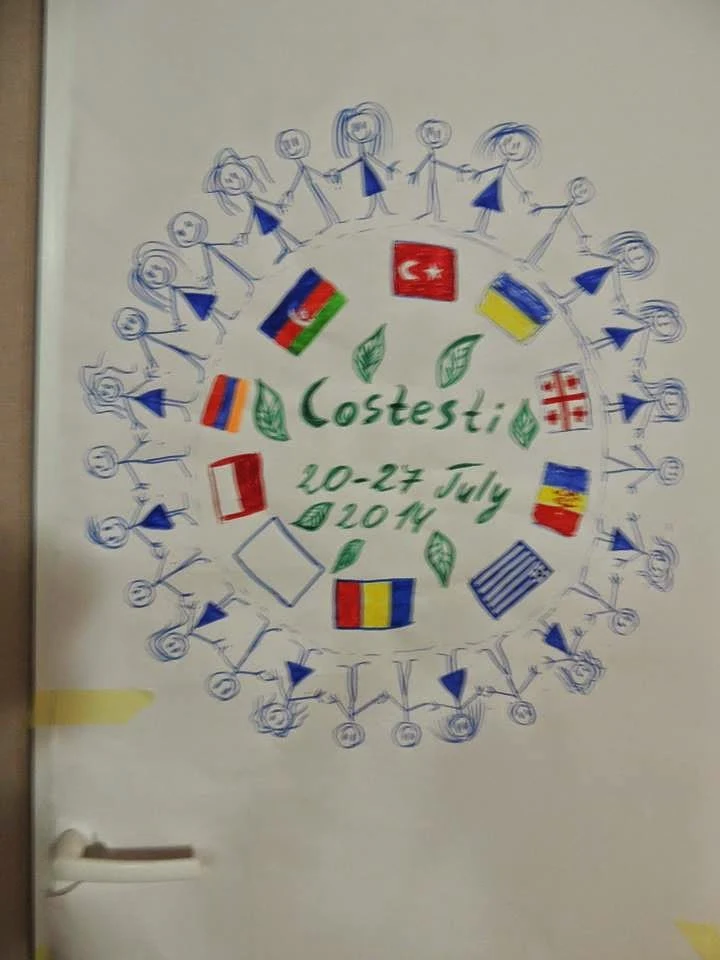 Costesti
20-27 July
2014